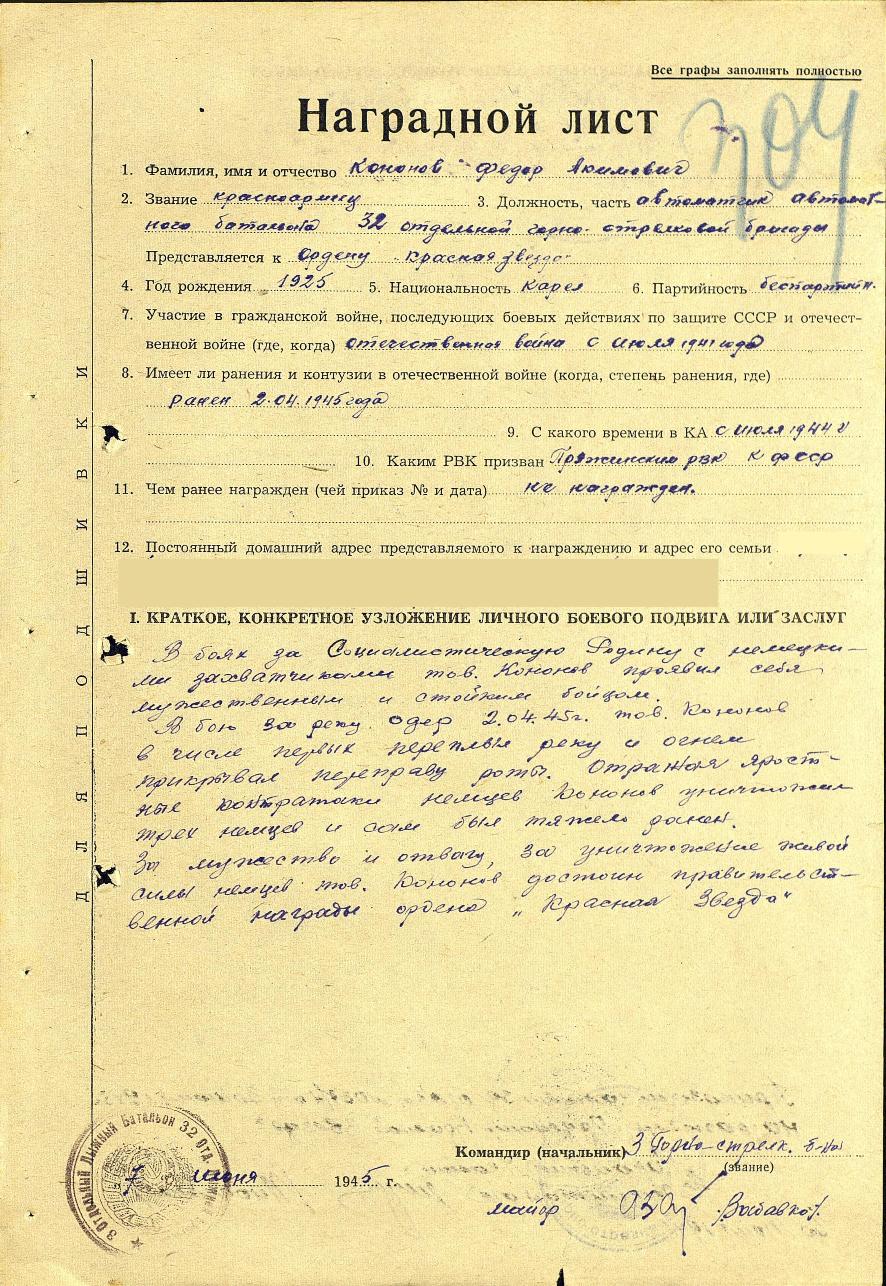 Все графы заполнять полностью
704
Наградной лист
1. Фамилия, имя и отчество Кононов Федор Акимович
2. Звание красноармеец 3. Должность, часть автоматчик автомат-
ного батальона 32 отдельной горно-стрелковой бригады
Представляется к Ордену Красная звезда
4. Год рождения 1925 5. Национальность карел 6. Партийность беспартийн.
7. Участие в гражданской войне, последующих боевых действиях по защите СССР и отечест-
венной войне (где, когда) отечественная война с июля 1941 года
8. Имеет ли ранения и контузии в отечественной войне (когда, степень ранения, где)
ранен 2.04.1945 года
9. С какого времени в КА с июля 1944 г
10. Каким РВК призван Пряжинским рвк КФССР
11. Чем ранее награжден (чей приказ № и дата) не награжден.
12. Постоянный домашний адрес представляемого к награждению и адрес его семьи
I. КРАТКОЕ, КОНКРЕТНОЕ УЗЛОЖЕНИЕ ЛИЧНОГО БОЕВОГО ПОДВИГА ИЛИ ЗАСЛУГ
В боях за Социалистическую Родину с немецки-
ми захватчиками тов. Кононов проявил себя
мужественным и стойким бойцом.
В бою за реку Одер 2.04.45г. тов. Кононов
в числе первых переплыл реку и огнем
прикрывал переправу роты. Отражая ярост-
ные контратаки немцев Кононов уничтожил
трех немцев и сам был тяжело ранен.
За мужество и отвагу, за уничтожение живой
силы немцев тов. Кононов достоин правительст-
венной награды ордена „Красная Звезда"
ДЛЯ ПОДШИВКИ
Командир (начальник) 3 Горно-стрелк. б-на
(звание)
3 Отдельный Лыжный Батальон 32 Отд.
7 июня 1945 г.
майор